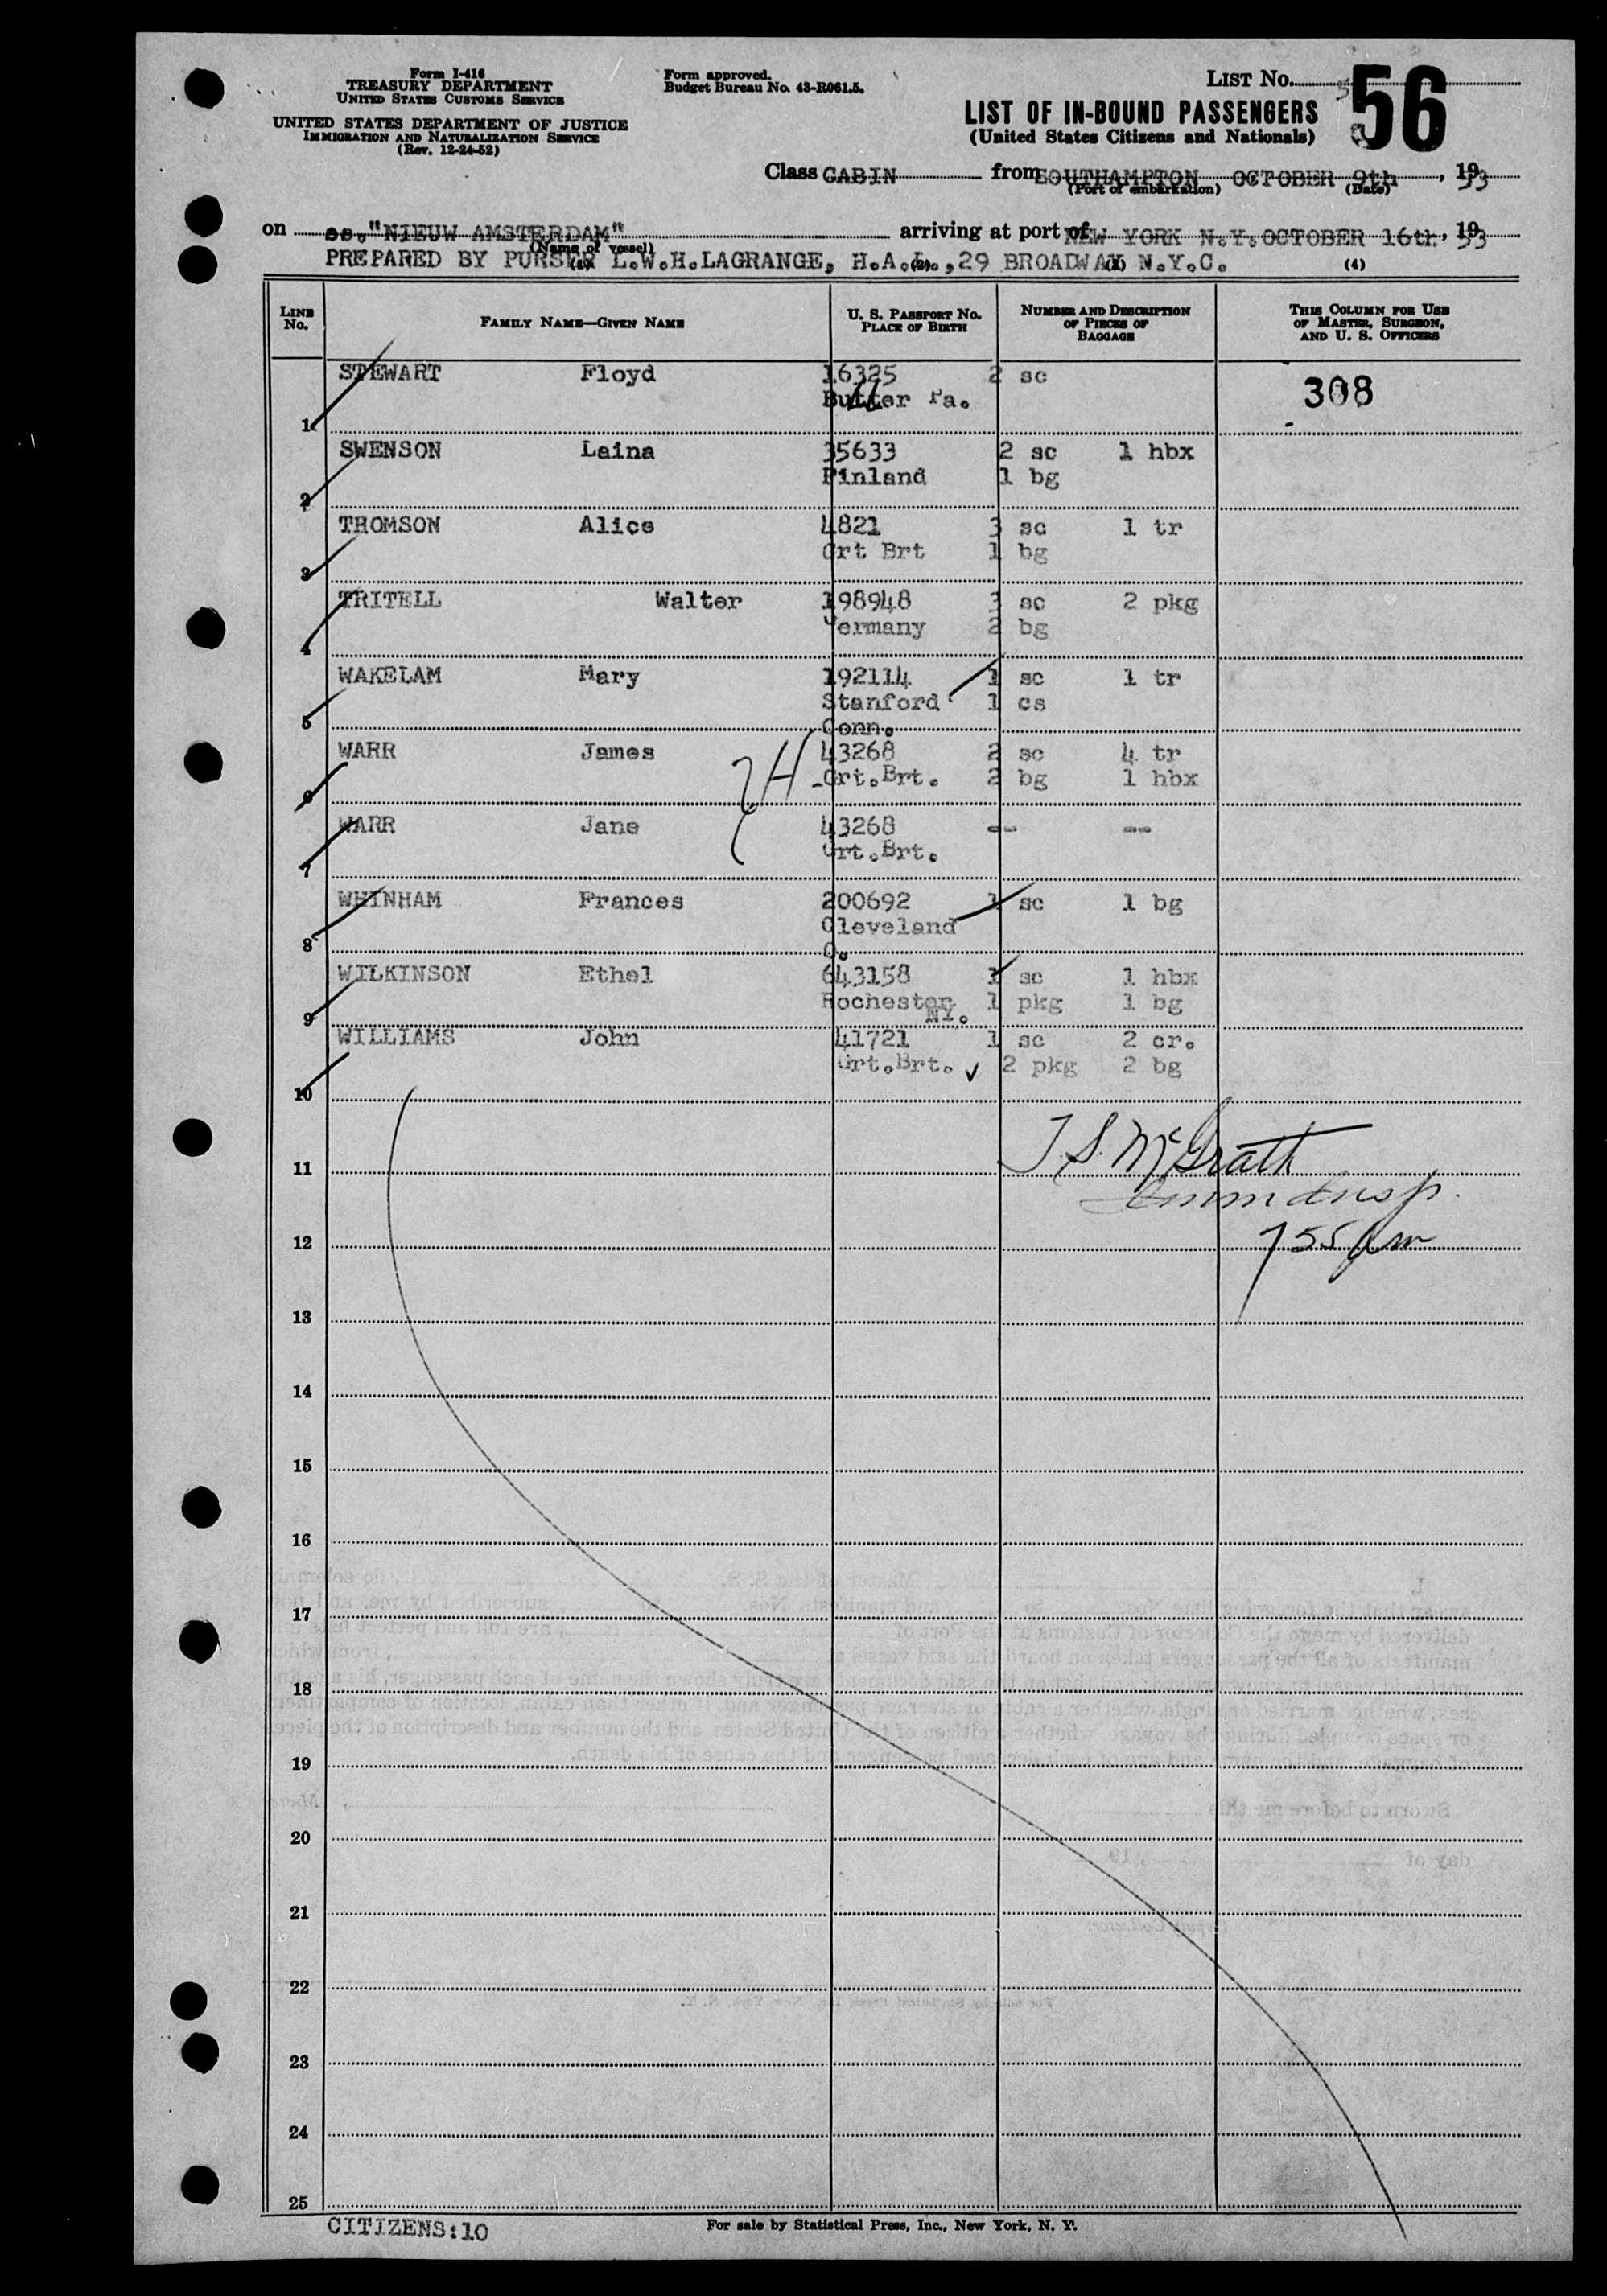 Form I-416
TREASURY DEPARTMENT
UNITED STATES CUSTOMS SERVICE
UNITED STATES DEPARTMENT OF JUSTICE
IMMIGRATION AND NATURALIZATION SERVICE
(Rev. 12-24-52)
Form approved.
Budget Bureau No. 43-R061.5.
LIST NO. 56
LIST OF IN-BOUND PASSENGERS
(United States Citizens and Nationals)
Class CABIN from SOUTHAMPTON OCTOBER 9th, 1953
(Port of embarkation) (Date)
on ss."NIEUW AMSTERDAM" arriving at port of NEW YORK N.Y. OCTOBER 16th, 1953
(Name of vessel)
PREPARED BY PURSER L.W.H.LAGRANGE, H.A.L.,29 BROADWAY N.Y.C.
(1) (2) (3) (4)
LINE NO. FAMILY NAME—GIVEN NAME U. S. PASSPORT NO. PLACE OF BIRTH NUMBER AND DESCRIPTION OF PIECES OF BAGGAGE THIS COLUMN FOR USE OF MASTER, SURGEON, AND U. S. OFFICERS
STEWART Floyd 16325 2 sc 308
1 Butler Pa.
SWENSON Laina 35633 2 sc 1 hbx
2 Finland 1 bg
THOMSON Alice 4821 3 sc 1 tr
3 Grt Brt 1 bg
TRITELL Walter 198948 3 sc 2 pkg
4 Germany 2 bg
WAKELAM Mary 192114 1 sc 1 tr
Stanford 1 cs
5 Conn.
WARR James 43268 2 sc 4 tr
6 Grt.Brt. 2 bg 1 hbx
WARR Jane 43268 -- --
7 Grt.Brt.
WHINHAM Frances 200692 1 sc 1 bg
Cleveland
8 O.
WILKINSON Ethel 643158 1 sc 1 hbx
9 Rochester NY. 1 pkg 1 bg
WILLIAMS John 41721 1 sc 2 cr.
10 Grt.Brt. 2 pkg 2 bg
T.S. McGrath
11
Imm Insp.
12 755 am
13
14
15
16
17
18
19
20
21
22
23
24
25
CITIZENS:10
For sale by Statistical Press, Inc., New York, N. Y.